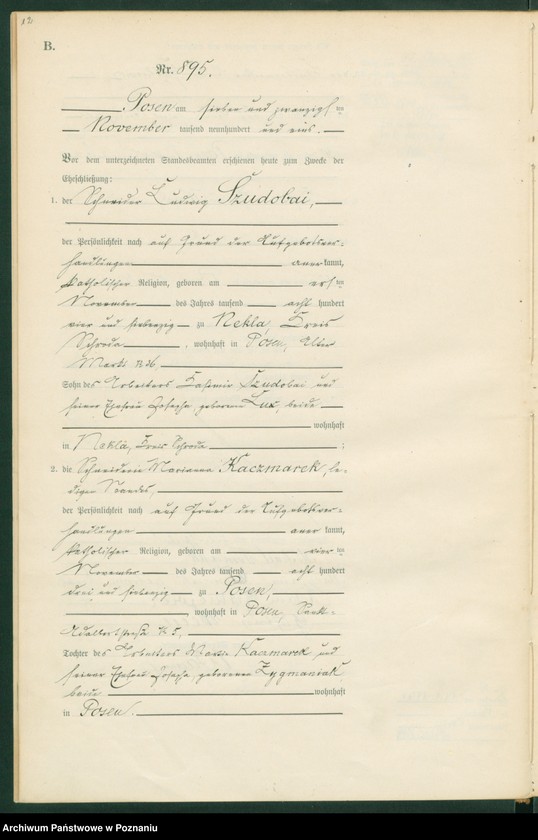 12
B.
Nr. 895.
Posen am sieben und zwanzigsten
November tausend neunhundert und eins.
Vor dem unterzeichneten Standesbeamten erschienen heute zum Zwecke der
Eheschließung:
1. der Schneider Ludwig Szudobai,
der Persönlichkeit nach auf Grund der Aufgebotsver-
handlungen anerkannt,
katholischer Religion, geboren am ersten
November des Jahres tausend acht hundert
vier und siebenzig zu Nekla, Kreis
Schroda, wohnhaft in Posen, Alter
Markt
Sohn des Arbeiters Casimir Szudobai und
seiner Ehefrau Josepha, geborenen Lux, beide
wohnhaft
in Nekla, Kreis Schroda ;
2. die Schneiderin Marianna Kaczmarek, le-
digen Standes,
der Persönlichkeit nach auf Grund der Aufgebotsver-
handlungen anerkannt,
katholischer Religion, geboren am vierten
November des Jahres tausend acht hundert
drei und siebenzig zu Posen,
wohnhaft in Posen, Sankt-
Adalbertstraße
Tochter des Arbeiters Kaczmarek und
seiner Ehefrau Josepha, geborenen Zygmaniak
beide wohnhaft
in Posen.
Archiwum Państwowe w Poznaniu